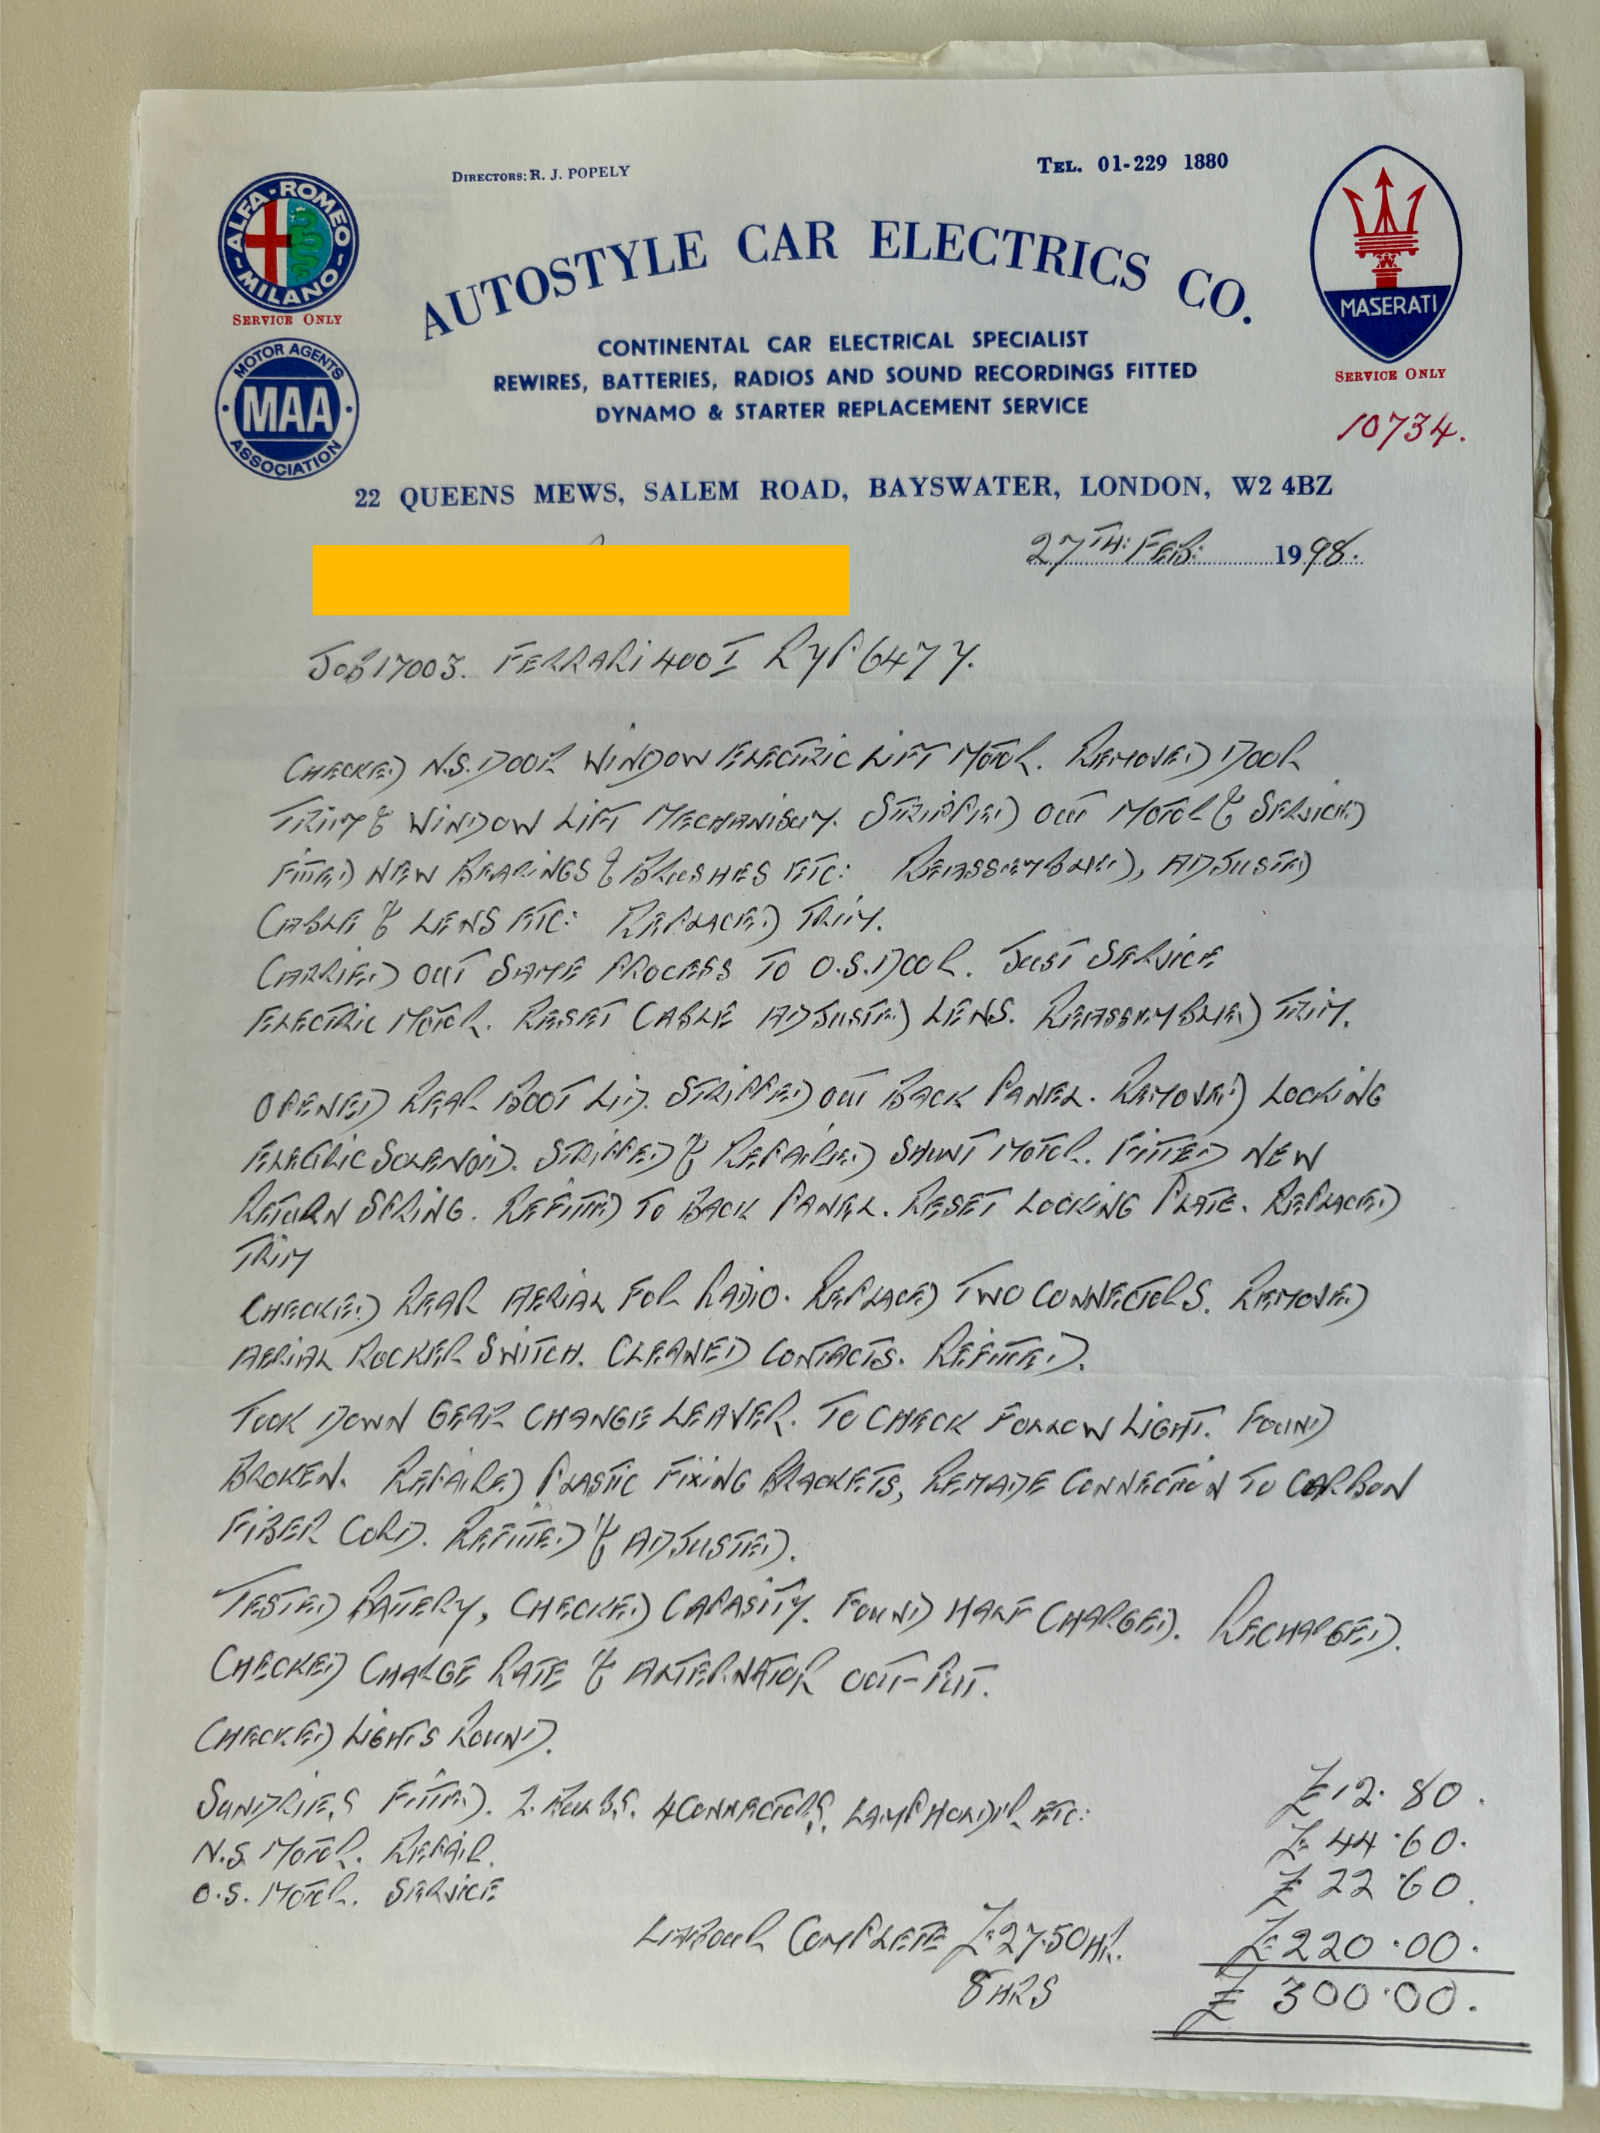 DIRECTORS: R. J. POPELY
TEL. 01-229 1880
ALFA-ROMEO
MILANO
SERVICE ONLY
MOTOR AGENTS
MAA
ASSOCIATION
AUTOSTYLE CAR ELECTRICS CO.
MASERATI
SERVICE ONLY
CONTINENTAL CAR ELECTRICAL SPECIALIST
REWIRES, BATTERIES, RADIOS AND SOUND RECORDINGS FITTED
DYNAMO & STARTER REPLACEMENT SERVICE
10734.
22 QUEENS MEWS, SALEM ROAD, BAYSWATER, LONDON, W2 4BZ
27TH: FEB: 1998.
JOB 17003. FERRARI 400I RYP 647Y.
CHECKED N.S. DOOR WINDOW ELECTRIC LIFT MOTOR. REMOVED DOOR
TRIM & WINDOW LIFT MECHANISUM. STRIPPED OUT MOTOR & SERVICED
FITTED NEW BEARINGS & BRUSHES ETC: REASSEMBLED, ADJUSTED
CABLE & LENS ETC: REPLACED TRIM.
CARRIED OUT SAME PROCESS TO O.S. DOOR. JUST SERVICE
ELECTRIC MOTOR. RESET CABLE ADJUSTED LENS. REASSEMBLED TRIM.
OPENED REAR BOOT LID. STRIPPED OUT BACK PANEL. REMOVED LOCKING
ELECTRIC SOLENOID. STRIPPED & REPAIRED SHUNT MOTOR. FITTED NEW
RETURN SPRING. REFITTED TO BACK PANEL. RESET LOCKING PLATE. REPLACED
TRIM
CHECKED REAR AERIAL FOR RADIO. REPLACED TWO CONNECTORS. REMOVED
AERIAL ROCKER SWITCH. CLEANED CONTACTS. REFITTED.
TOOK DOWN GEAR CHANGE LEAVER. TO CHECK FOLLOW LIGHT. FOUND
BROKEN. REPAIRED PLASTIC FIXING BRACKETS, REMADE CONNECTION TO CARBON
FIBER CORD. REFITTED & ADJUSTED.
TESTED BATTERY, CHECKED CAPASITY. FOUND HALF CHARGED. RECHARGED.
CHECKED CHARGE RATE & ALTERNATOR OUT-PUT.
CHECKED LIGHTS ROUND.
SUNDRIES FITTED. 2. BULBS. 4 CONNECTORS, LAMP HOLDER ETC: £12.80.
N.S. MOTOR. REPAIR. £44.60.
O.S. MOTOR. SERVICE £22.60.
LABOUR COMPLETE £27.50 HR. £220.00.
8 HRS £300.00.